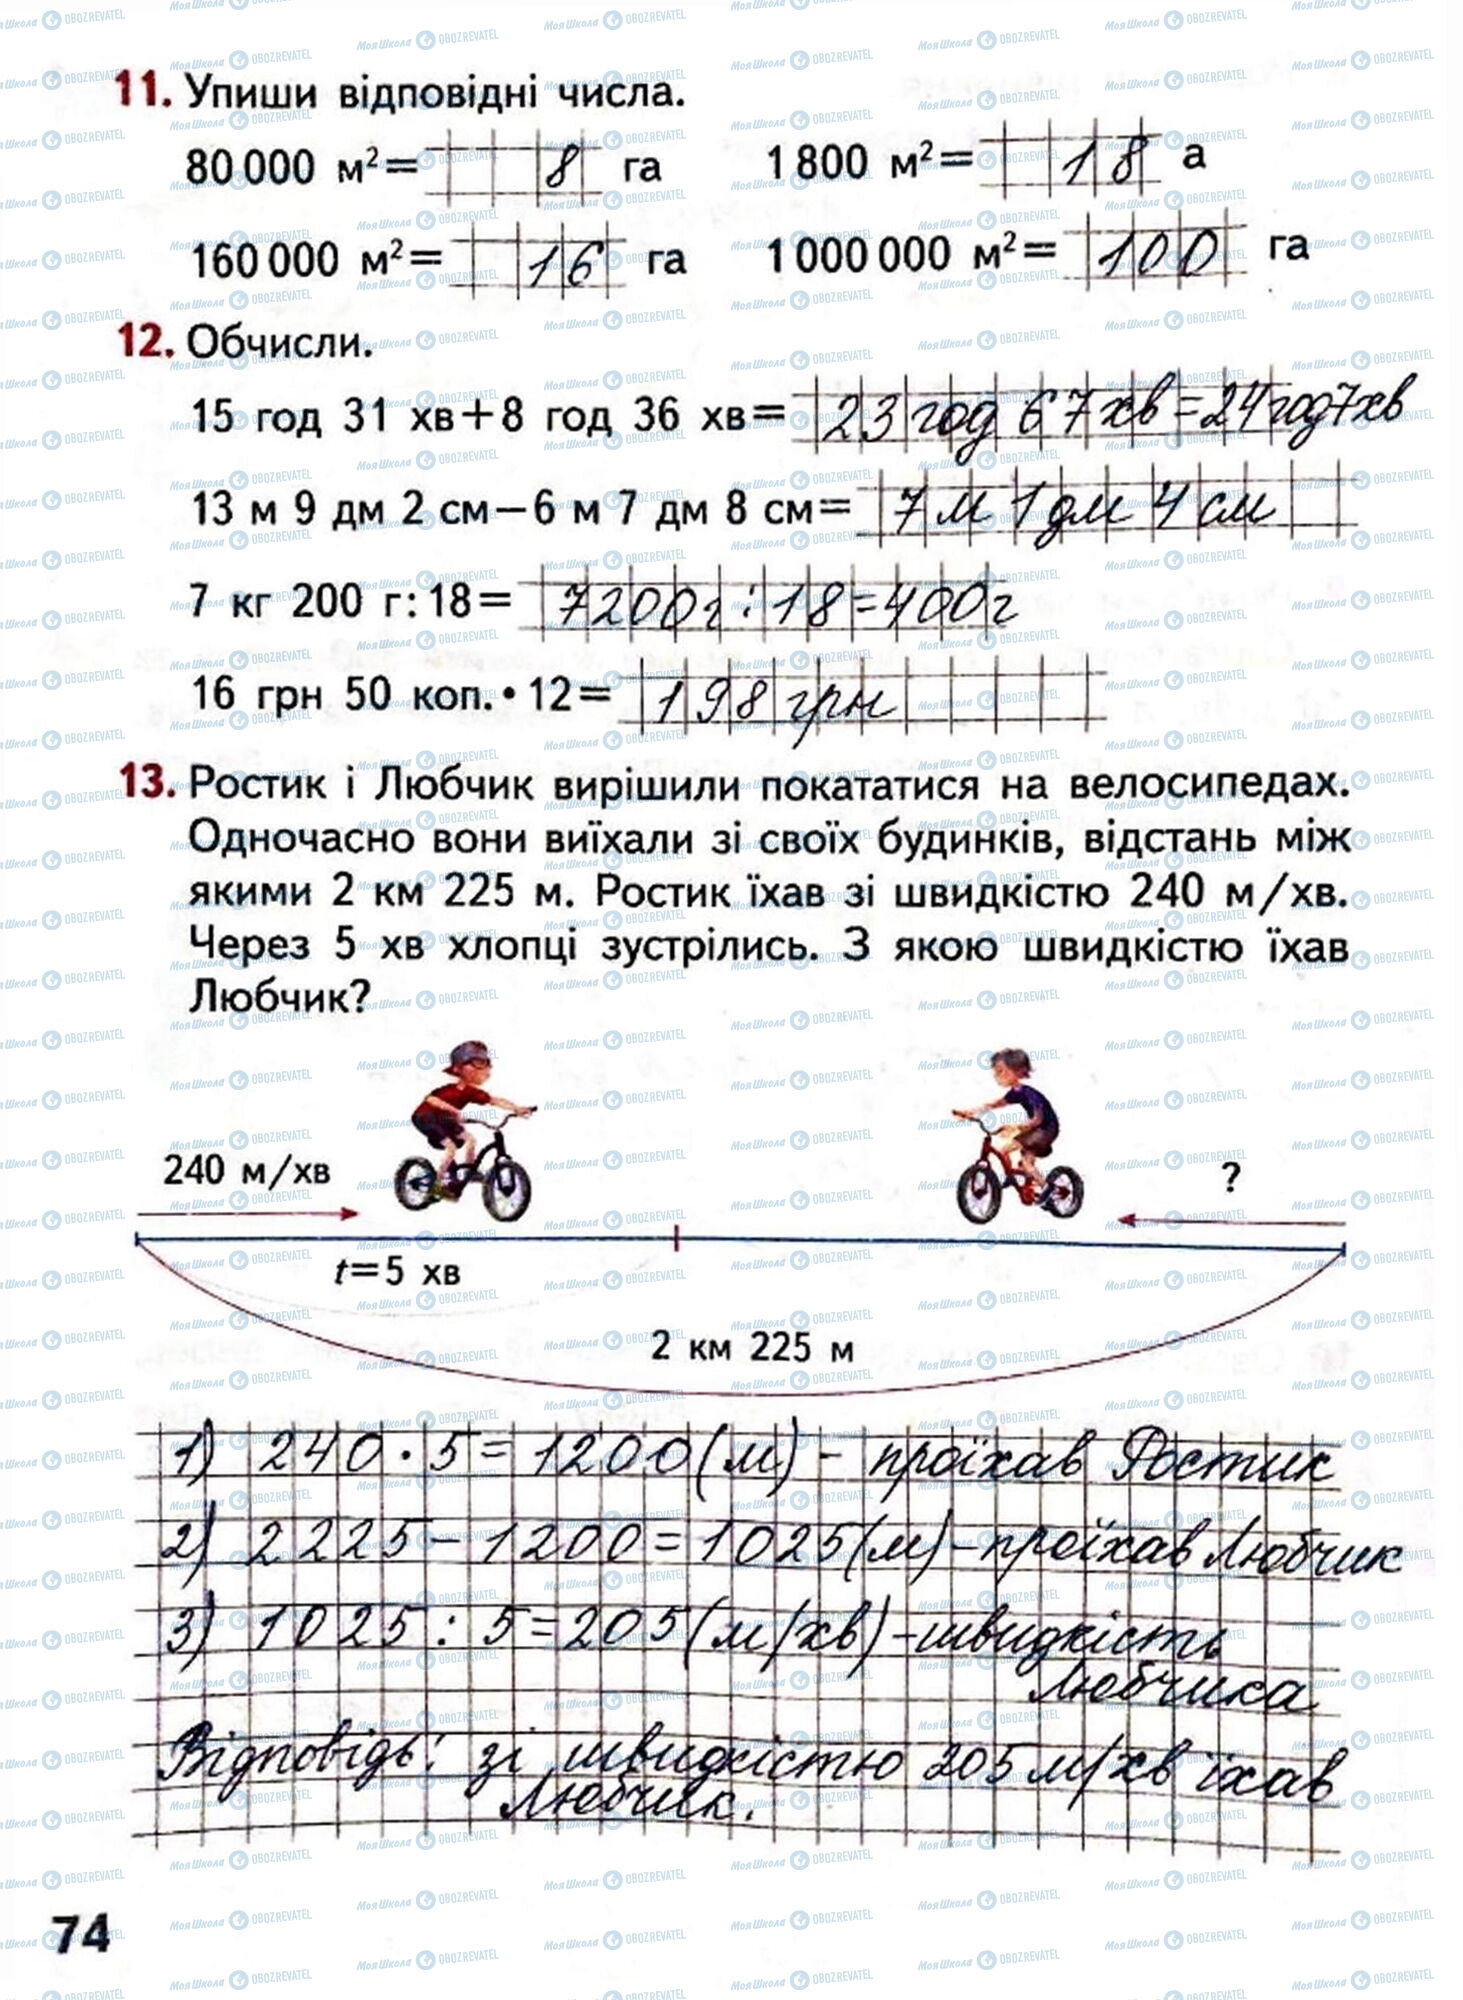 11. Упиши відповідні числа.
80 000 м²= 8 га 1 800 м²= 18 а
160 000 м²= 16 га 1 000 000 м²= 100 га
12. Обчисли.
15 год 31 хв+8 год 36 хв= 23 год 67 хв = 24 год 7 хв
13 м 9 дм 2 см−6 м 7 дм 8 см= 7 м 1 дм 4 см
7 кг 200 г:18= 7200 г : 18 = 400 г
16 грн 50 коп.•12= 198 грн
13. Ростик і Любчик вирішили покататися на велосипедах.
Одночасно вони виїхали зі своїх будинків, відстань між
якими 2 км 225 м. Ростик їхав зі швидкістю 240 м/хв.
Через 5 хв хлопці зустрілись. З якою швидкістю їхав
Любчик?
240 м/хв ?
t=5 хв
2 км 225 м
1) 240 · 5 = 1200 (м) - проїхав Ростик
2) 2225 - 1200 = 1025 (м) - проїхав Любчик
3) 1025 : 5 = 205 (м/хв) - швидкість
Любчика
Відповідь: зі швидкістю 205 м/хв їхав
Любчик.
74
МояШкола OBOZREVATEL